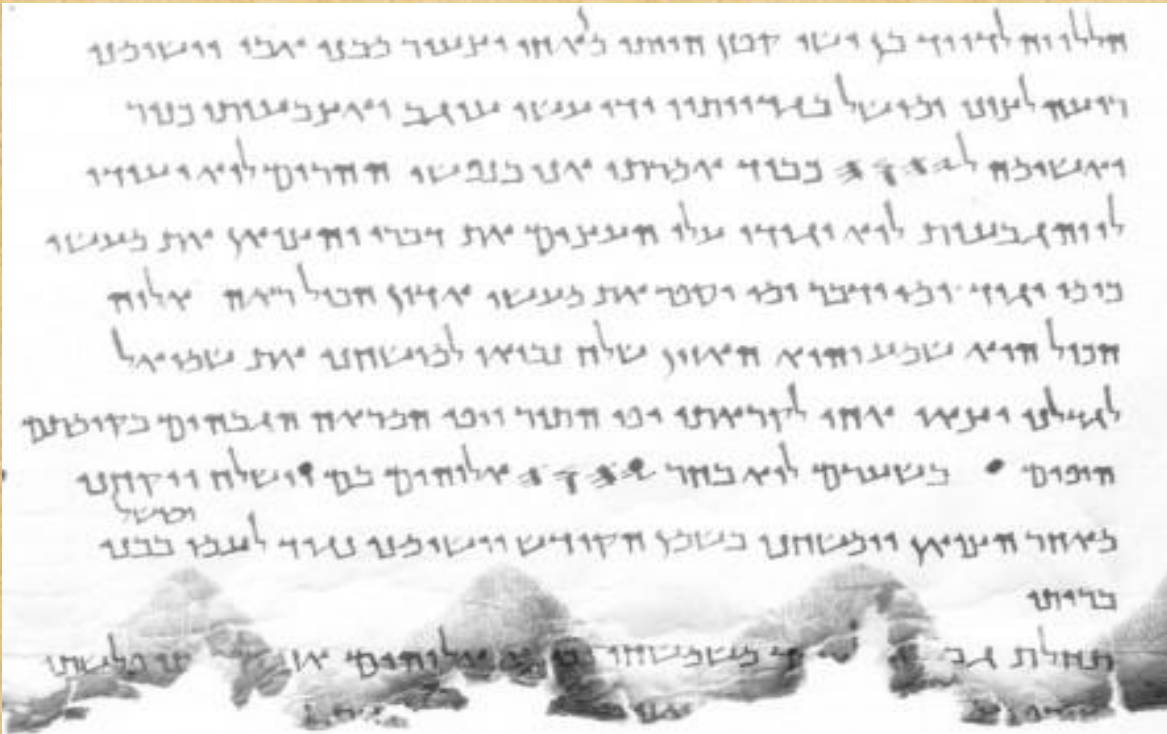 הללויה לדויד בן ישי קטן הייתי מן אחי וצעיר מבני אבי וישימני
רועה לצונו ומושל בגדיותיו ידי עשו עוגב ואצבעותי כנור
ואשימה ל𐤉𐤄𐤅𐤄 כבוד אמרתי אני בנפשי ההרים לוא יעידו
לי והגבעות לוא יגידו עלו העצים את דברי והצואן את מעשי
כי מי יגיד ומי ידבר ומי יספר את מעשי אדון הכול ראה אלוה
הכול הוא שמע והוא האזין שלח נביאו למושחני את שמואל
לגדלני יצאו אחי לקראתו יפי התור ויפי המראה הגבהים בקומתם
היפים בשערם לוא בחר 𐤉𐤄𐤅𐤄 אלוהים בם וישלח ויקחני
ומושל
מאחר הצואן וימשחני בשמן הקודש וישימני נגיד לעמו בבני
בריתו
תחלת גב משמשחו אלוהים פלשתי